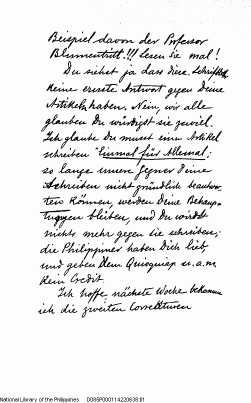 Beispiel davon der Professor
Blumentritt!!! Lesen Sie mal!
Du siehst ja dass diese Schriftst.
keine ernste Antwort gegen Deine
Artikeln haben. Nein, wir alle
glauben Du würdigst sie zuviel.
Ich glaube Du musst ein Artikel
schreiben "Einmal für Allemal:
so lange unsere Gegner Deine
Schreiben nicht gründlich beantwor-
ten können, werden Deine Behaup-
tungen bleiben, und Du wirst
nichts mehr gegen sie schreiben;
die Philippiner haben Dich lieb
und geben dem Quioquiap u. a. m.
kein Credit.
Ich hoffe nächste Woche bekomme
ich die zweiten Correkturen
National Library of the Philippines